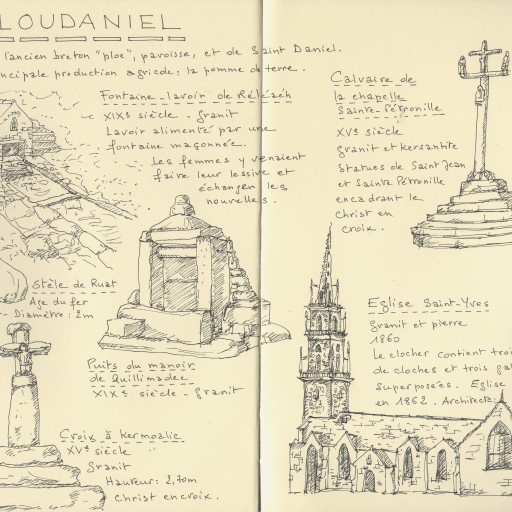 LOUDANIEL
l'ancien breton "ploe", paroisse, et de Saint Daniel.
ncipale production agricole : la pomme de terre.
Fontaine-lavoir de
XIXè siècle - granit
Lavoir alimenté par une
fontaine maçonnée.
Les femmes y venaient
faire leur lessive et
échanger les
nouvelles.
Calvaire de
la chapelle
Sainte-Pétronille
XVè siècle
granit et kersantite
Statues de Saint Jean
et Sainte Pétronille
encadrant le
Christ en
croix.
Stèle de Ruat
Age du fer
Diamètre : 2m
Puits du manoir
de Quillimadec
XIXè siècle - granit
Croix à Kermoalic
XVè siècle
granit
Hauteur : 2,70m
Christ en croix.
Eglise Saint-Yves
granit et pierre
1860
Le clocher contient troi
de cloches et trois ga
superposées. Eglise
en 1862. Architecte :